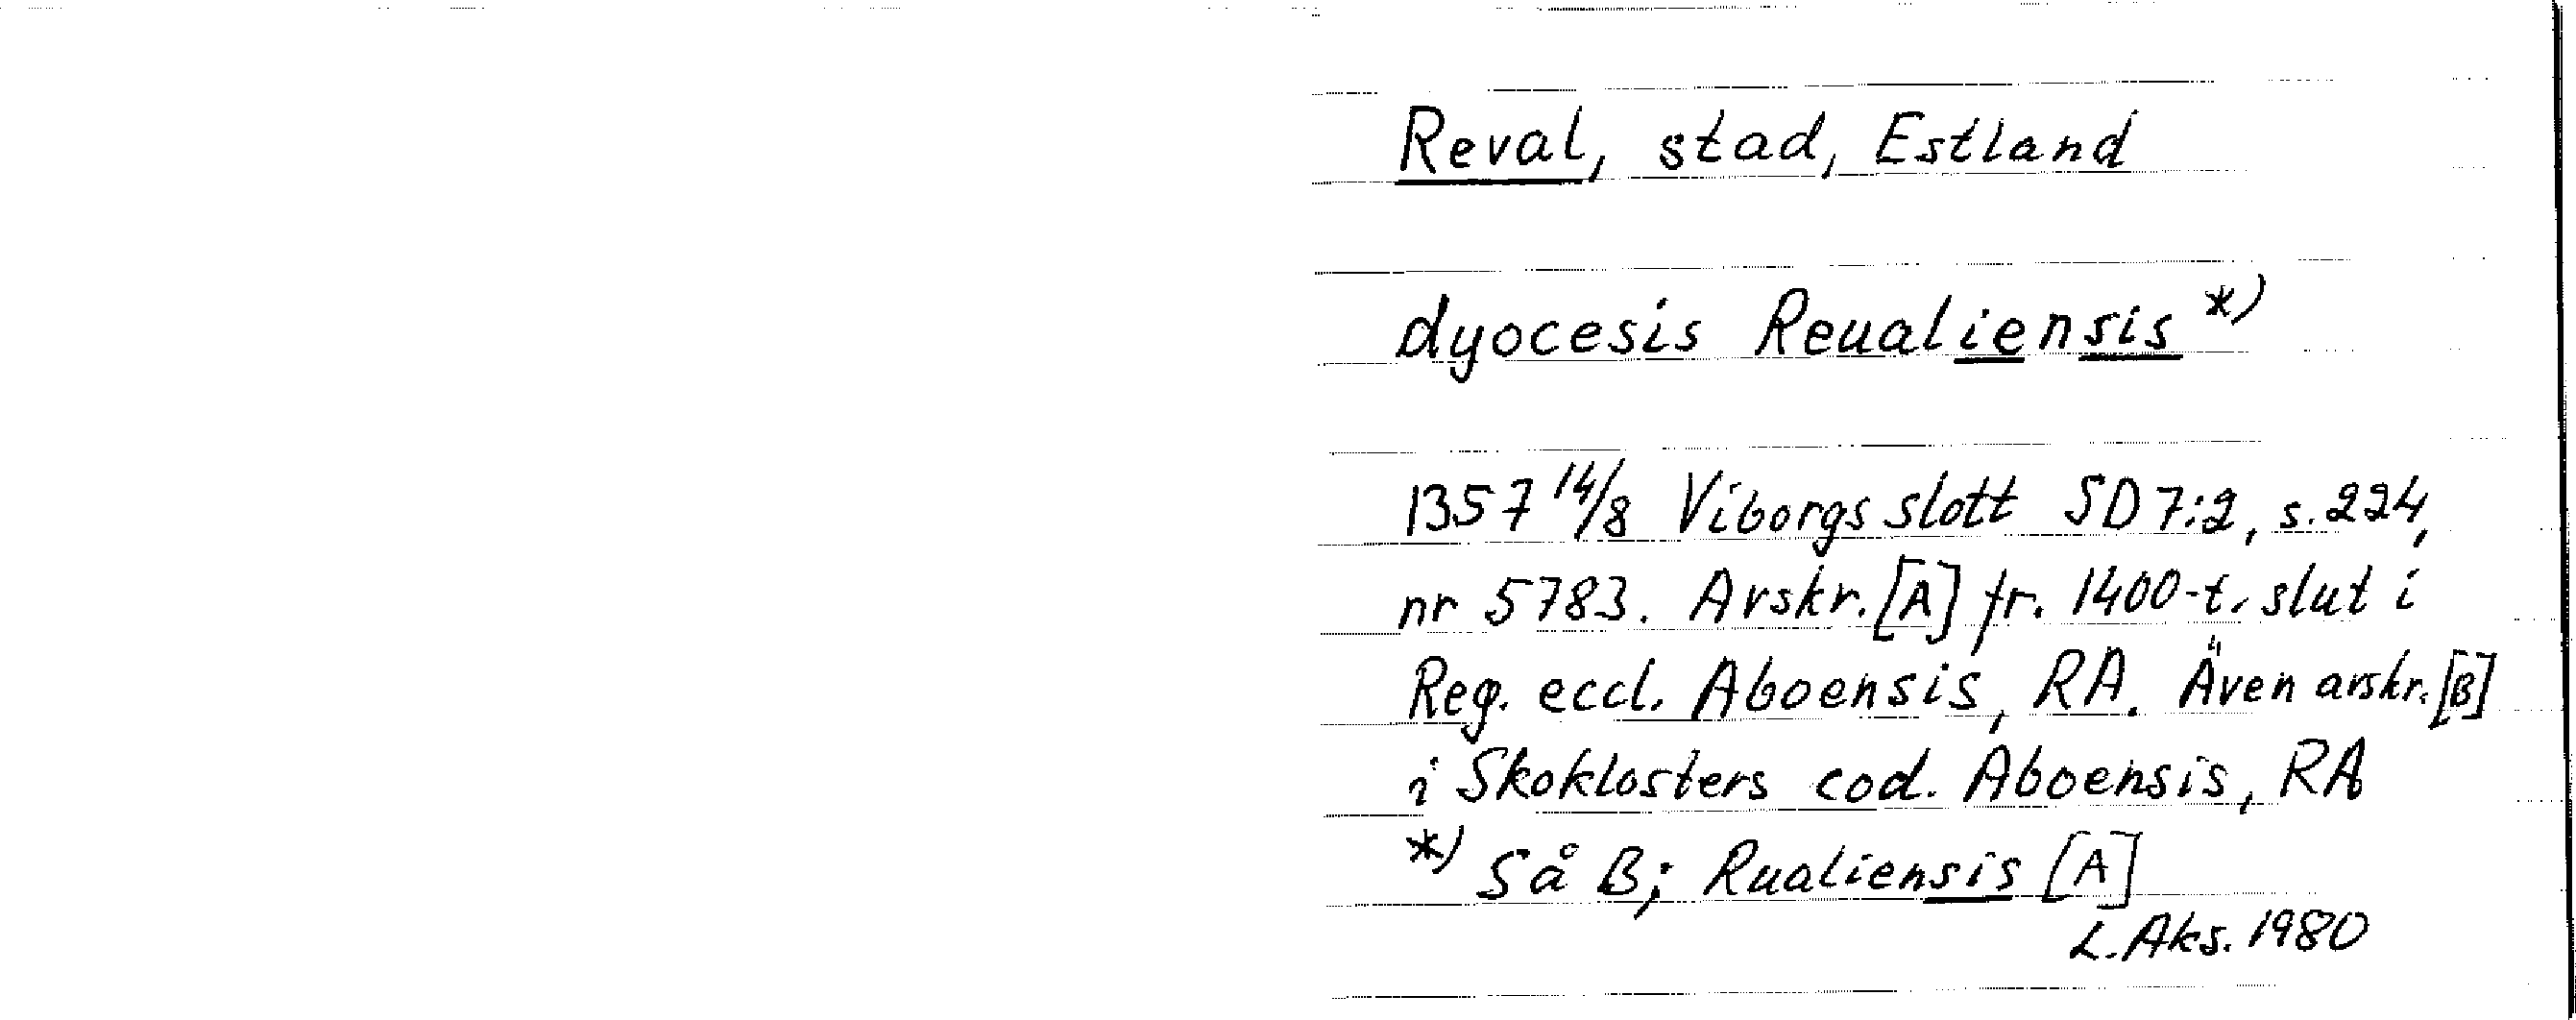 Reval, stad, Estland
dyocesis Reualiensis *)
1357 14/8 Viborgs slott SD 7:2, s. 224,
nr 5783. Avskr. [A] fr. 1400-t. slut i
Reg. eccl. Aboensis, RA. Även avskr. [B]
i Skoklosters cod. Aboensis, RA
*) Så B; Rualiensis [A]
L. Aks. 1980